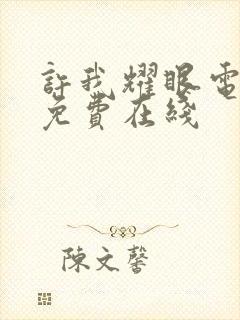 許我耀眼電
免費在綫
陳文馨